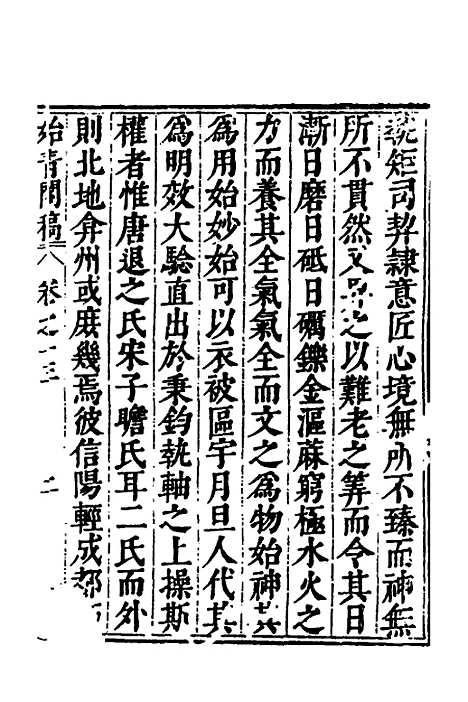 矩司契隷意匠心境無所不臻而神無
所不貫然又畀之以難老之筭而令其日
漸日磨日砥日礪鑠金漚蔴窮極水火之
力而養其全氣氣全而文之爲物始神其
爲用始妙始可以衣被區宇月旦人代其
爲明效大驗直出於秉鈞執軸之上操斯
權者惟唐退之氏宋子瞻氏耳二氏而外
則北地弇州或庶幾焉彼信陽輕成都
始青閣稿 卷之十三 二